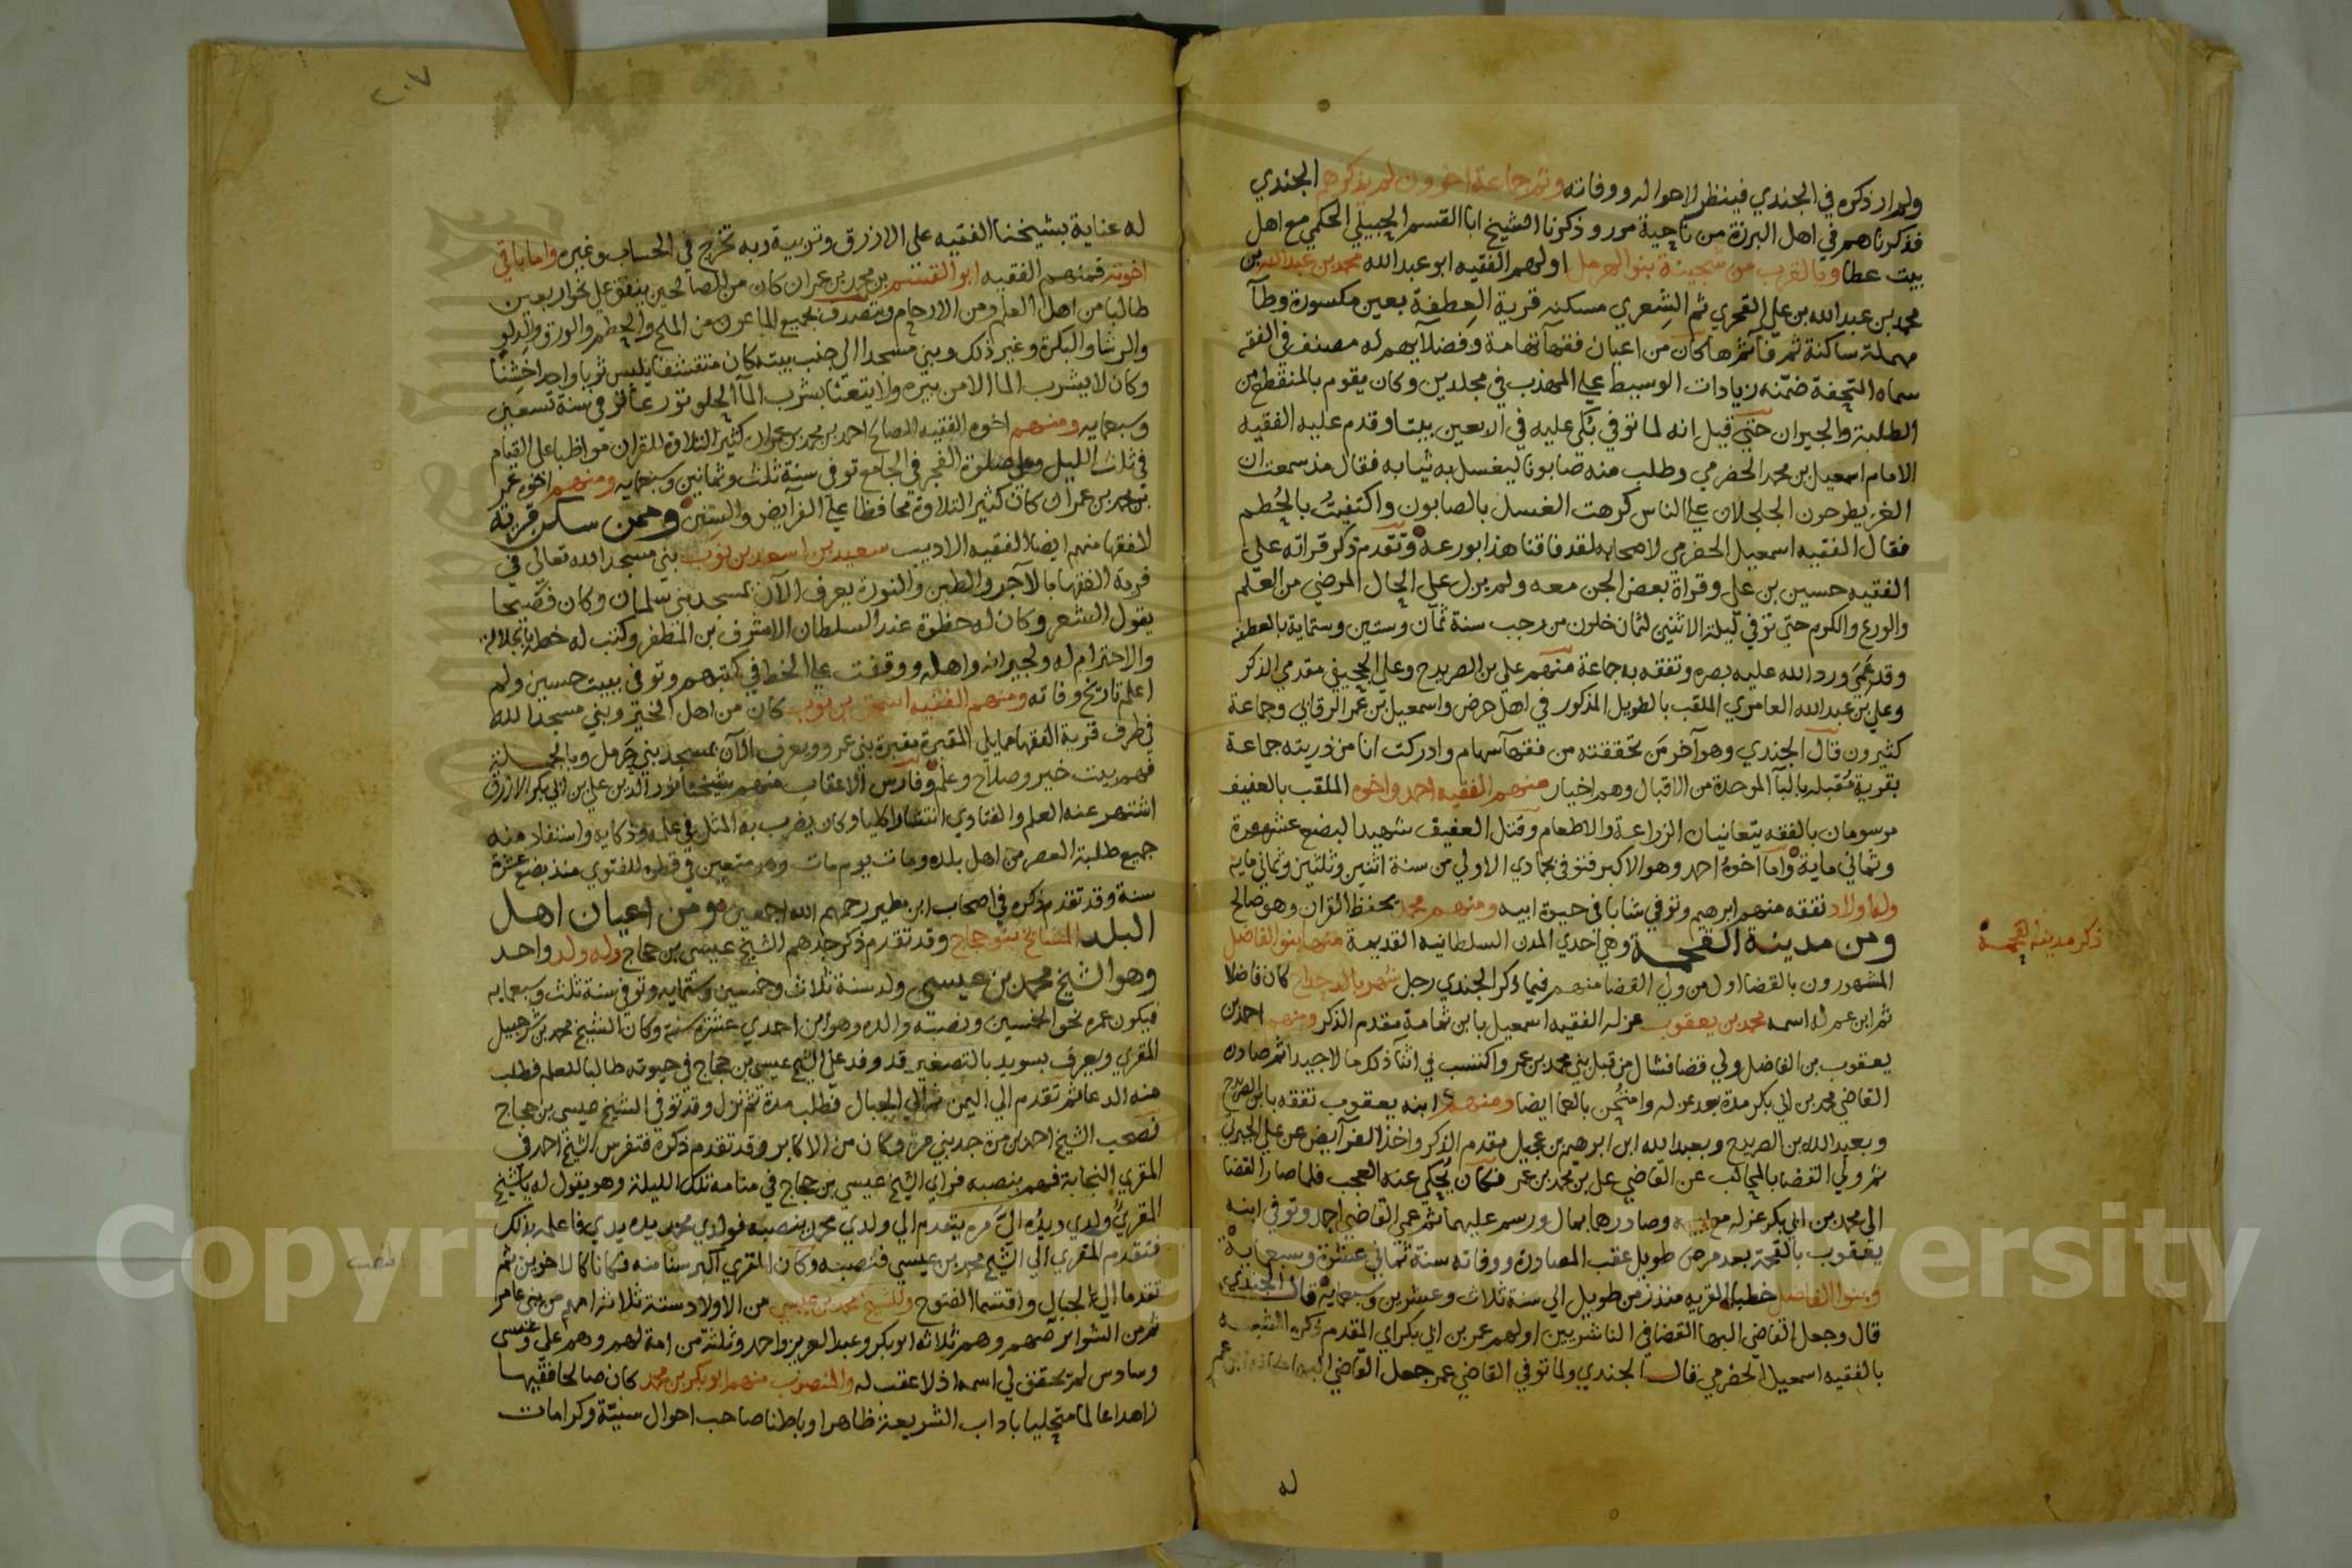 ولم ار ذكره في الجندي فينظر لاحواله ووفاته وثم جماعة اخرون لم يذكرهم الجندي
فذكرناهم في اهل البرزة من ناحية مور وذكرنا الشيخ ابا القسم الجبيلي الحكمي مع اهل
بيت عطا وبالقرب من شجينة بنو الهرمل اولهم الفقيه ابو عبد الله محمد بن عبد الله بن
محمد بن عبد الله بن علي القحري ثم الشعري مسكنه قرية العطفة بعين مكسورة وطآ
مهملة ساكنة ثم فآ ثم ها كان من اعيان فقهآ تهامة وفضلآيهم له مصنف في الفقه
سماه التحفة ضمنه زيادات الوسيط علي المهذب في مجلدين وكان يقوم بالمنقطع من
الطلبة والجيران حتي قيل انه لما توفي بكى عليه في الاربعين بيتا وقدم عليه الفقيه
الامام اسمعيل بن محمد الحضرمي وطلب منه صابونا ليغسل به ثيابه فقال مذ سمعت ان
الغز يطرحون الجلجلان علي الناس كرهت الغسل بالصابون واكتفيت بالحطم
فقال الفقيه اسمعيل الحضرمي لاصحابه لقد فاقنا هذا بورعه وتقدم ذكر قراته علي
الفقيه حسين بن علي وقراة بعض الجن معه ولم يزل علي الحال المرضي من العلم
والورع والكرم حتي توفي ليلة الاثنين لثمان خلون من رجب سنة ثمان وستين وستماية بالعطفة
وقد عمي ورد الله عليه بصره وتفقه به جماعة منهم علي بن الصريدح وعلي الجحيفي مقدمي الذكر
وعلي بن عبد الله العامري الملقب بالطويل المذكور في اهل حرض واسمعيل بن عمر الرقابي وجماعة
كثيرون قال الجندي وهو آخر من تحققته من فقهآ سهام وادركت انا من ذريته جماعة
بقرية مقبله بالبآ الموحدة من الاقبال وهم اخيار منهم الفقيه احمد واخوه الملقب بالعفيف
مرسومان بالفقه يتعانيان الزراعة والاطعام وقتل العفيف شهيدا لبضع عشرة
وثماني ماية واما اخوه احمد وهو الاكبر فتوفي بجمادي الاولي من سنة اثنين وثلثين وثماني مايه
وله اولاد تفقه منهم ابرهيم وتوفي شابا في حيوة ابيه ومنهم محمد يحفظ القران وهو صالح
ومن مدينة القحمة وهي احدي المدن السلطانيه القديمة منها بنو الفاضل
المشهورون بالقضا اول من ولي القضا منهم فيما ذكر الجندي رجل شهر بالدحداح كان فاضلا
ثم ابن عم له اسمه محمد بن يعقوب عزله الفقيه اسمعيل بابن ثمامة مقدم الذكر ومنهم احمد بن
يعقوب بن الفاضل ولي قضا فشال من قبل بني محمد بن عمر واكتسب في اثنآ ذلك مالا جيدا ثم صادره
القاضي محمد بن ابي بكر مدة بعد عزله وامتحن بالعما ايضا ومنهم ابنه يعقوب تفقه بابن الصريدح
وبعبد الله بن الصريدح وبعبد الله ابن ابرهيم بن عجيل مقدم الذكر واخذ الفرآيض عن علي الجبرتي
ثم ولي القضا بالمحالب عن القاضي علي بن محمد بن عمر فكان يحكي عنه العجب فلما صار القضا
الي محمد بن ابي بكر عزله مع وصادرهما بمال ورسم عليهما ثم عمي القاضي احمد وتوفي ابنه
يعقوب بالقحمة بعد مرض طويل عقب المصادرة ووفاته سنة ثماني عشرة وسبعماية
وبنوا الفاضل خطبا القريه منذ زمن طويل الي سنة ثلاث وعشرين وسبعماية قال الجندي
قال وجعل القاضي البها القضا في الناشريين اولهم عمر بن ابي بكر اي المقدم ذكره
بالفقيه اسمعيل الحضرمي قال الجندي ولما توفي القاضي عمر جعل القاضي البها
له
ذكر مدينة القحمة
٢٠٧
له عناية بشيخنا الفقيه علي الازرق وتربية وبه تخرج في الحساب وغيره واما باقي
اخوته فمنهم الفقيه ابو القسم بن محمد بن عمران كان من الصالحين ينفق علي نحو اربعين
طالبا من اهل العلم ومن الارحام ويتصدق بجميع الماعون من الملح والحطم والورق والدلو
والرشا والبكرة وغير ذلك وبني مسجدا الي جنب بيته كان متقشفا يلبس ثوبا واحدا خشنا
وكان لا يشرب المآ الا من بيره ولا يتعنا بشرب المآ الحلو تورعا توفي سنة تسعين
وسبعمايه ومنهم اخوه الفقيه الصالح احمد بن محمد بن عمران كثير التلاوة للقران مواظبا علي القيام
في ثلث الليل وعلي صلوة الفجر في الجامع توفي سنة ثلث وثمانين وسبعمايه ومنهم اخوه عمر
بن محمد بن عمران كان كثير التلاوة محافظا علي الفرآيض والسنن وممن سكن قرية
الفقها منهم ايضا الفقيه الاديب سعيد بن اسعد بن نوب بني مسجدا لله تعالي في
قرية الفقها بالآجر والطين والنورة يعرف الآن بمسجد بني سلمان وكان فصيحا
يقول الشعر وكان له حظوة عند السلطان الاشرف بن المظفر وكتب له خطا بالجلالة
والاحترام له ولجيرانه واهله ووقفت علي الخط في كتبهم وتوفي ببيت حسين ولم
اعلم تاريخ وفاته ومنهم الفقيه اسحق بن نوب كان من اهل الخير وبني مسجدا لله
في طرف قرية الفقها مما يلي المقبرة مقبرة بني عمرو ويعرف الآن بمسجد بني حرمل وبالجملة
فهم بيت خير وصلاح وعلم وفارس الاعقاب منهم شيخنا نور الدين علي بن ابي بكر الازرق
اشتهر عنه العلم والفتاوي انتشارا كليا وكان يضرب به المثل في علمه وذكايه واستفاد منه
جميع طلبة العصر من اهل بلده ومات يوم مات وهو متعين في قطره للفتوي منذ بضع عشرة
سنة وقد تقدم ذكره في اصحاب ابن مطير رحمهم الله اجمعين ومن اعيان اهل
البلد المشايخ بنو حجاج وقد تقدم ذكر جدهم الشيخ عيسي بن حجاج وله ولد واحد
وهو الشيخ محمد بن عيسي ولد سنة ثلاث وخمسين وستمايه وتوفي سنة ثلث وسبعمايه
فيكون عمره نحو الخمسين ونصبته والده وهو ابن احدي عشرة سنة وكان الشيخ محمد بن شرحبيل
المقري ويعرف بسويد بالتصغير قد وفد علي الشيخ عيسي بن حجاج في حيوته طالبا للعلم فطلب
منه الدعا ثم تقدم الي اليمن ثم الي الجبال فطلب مدة ثم نزل وقد توفي الشيخ عيسي بن حجاج
فصحب الشيخ احمد بن مرة جد بني مرة وكان من الاكابر وقد تقدم ذكره فتفرس الشيخ احمد في
المقري النجابة فهم بنصبه فراي الشيخ عيسي بن حجاج في منامه تلك الليلة وهو يقول له يا شيخ
المقري ولدي ويده الي مره يتقدم الي ولدي محمد ينصبه فولدي محمد يده يدي فاعلمه بذلك
فتقدم المقري الي الشيخ محمد بن عيسي فنصبه وكان المقري اكبر سنا منه فكانا كالاخوين ثم
تقدما الي الجبال واقتسما الفتوح وللشيخ محمد بن عيسي من الاولاد ستة ثلاثة امهم من بني عامر
ثم من الشوابر وهم ثلاثه ابو بكر وعبد العزيز واحمد وثلثة من امة لهم وهم علي وعيسي
وسادس لم يتحقق لي اسمه اذ لا عقب له والمنصوب منهم ابو بكر بن محمد كان صالحا فقيها
زاهدا عالما متحليا باداب الشريعة ظاهرا وباطنا صاحب احوال سنية وكرامات
Copyright © King Saud University